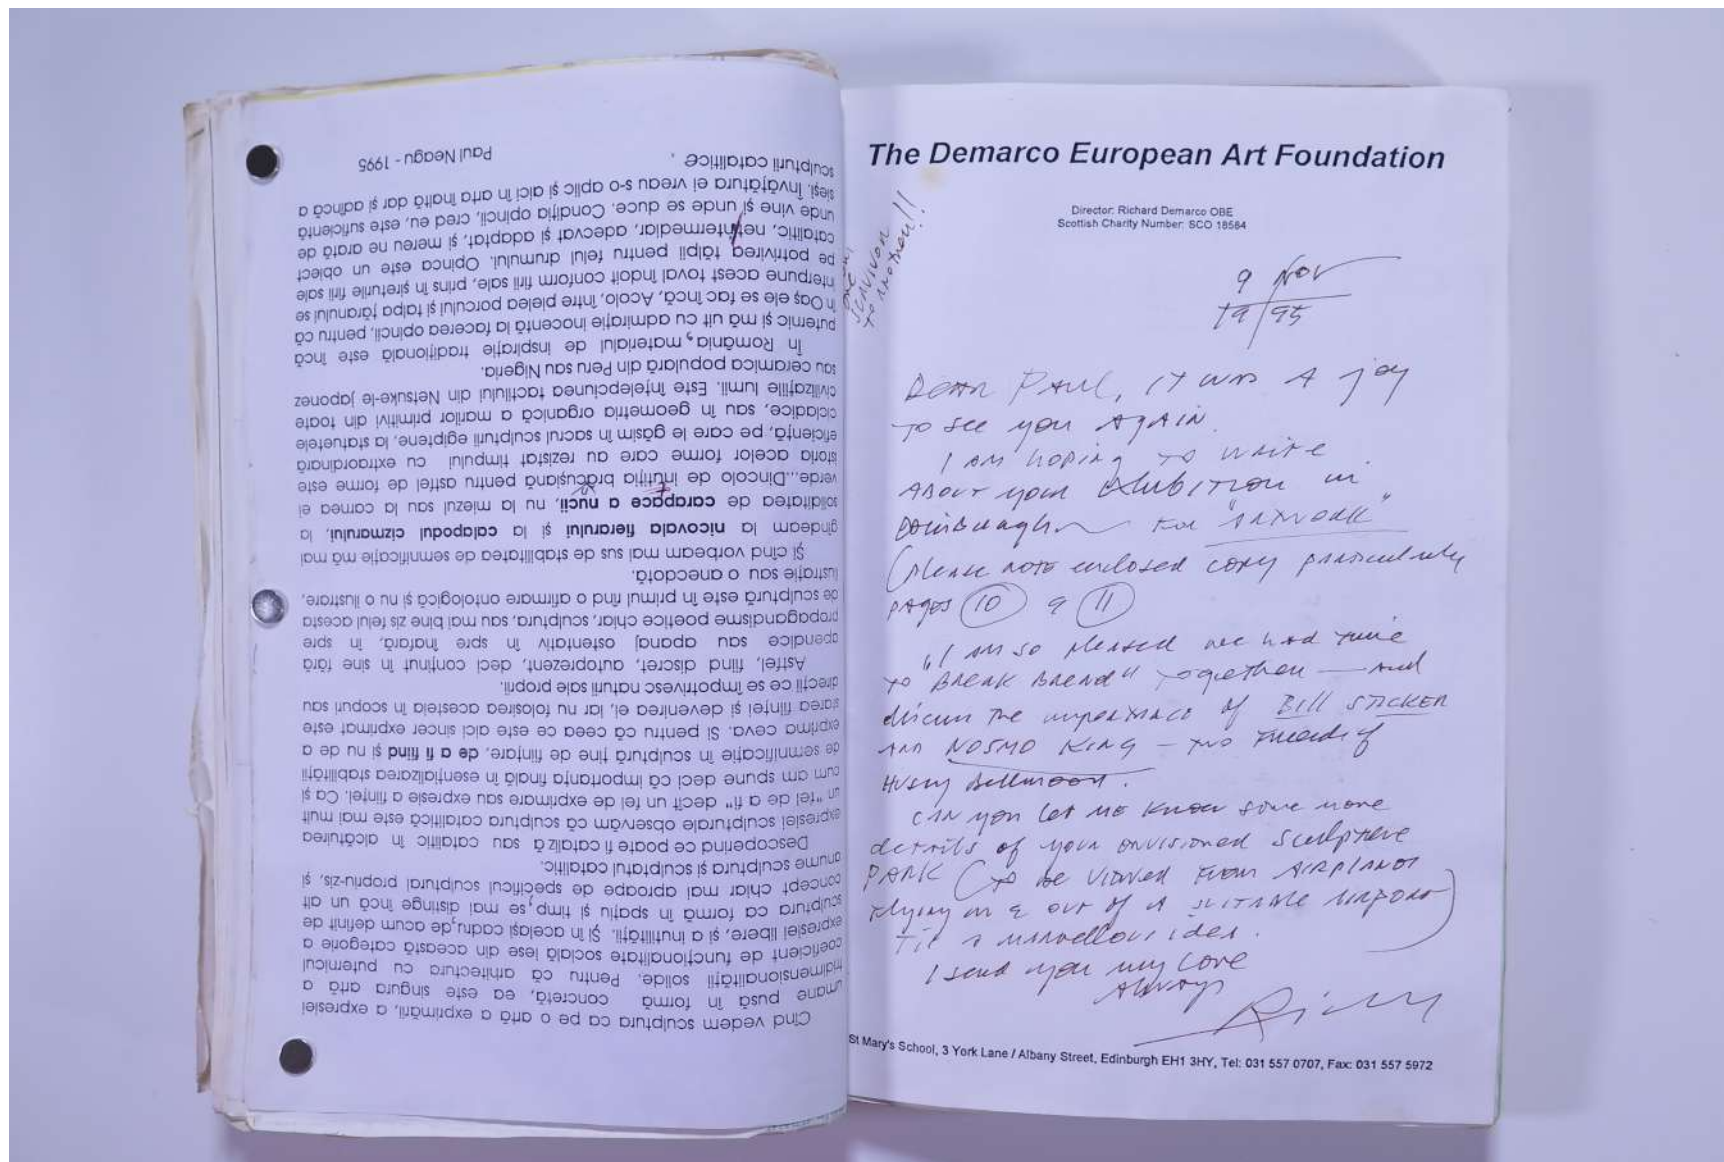 Cînd vedem sculptura ca pe o artă a exprimării, a expresiei
umane pusă în formă concretă, ea este singura artă a
tridimensionalității solide. Pentru că arhitectura cu puternicul
coeficient de funcționalitate socială iese din această categorie a
expresiei libere, și a inutilității. Și în același cadru, de acum definit de
sculptura ca formă în spațiu și timp, se mai distinge încă un alt
concept chiar mai aproape de specificul sculptural propriu-zis, și
anume sculptura și sculptatul catalitic.
Descoperind ce poate fi cataliză sau catalitic în alcătuirea
expresiei sculpturale observăm că sculptura catalitică este mai mult
un "fel de a fi" decît un fel de exprimare sau expresie a ființei. Ca și
cum am spune deci că importanța finală în esențializarea stabilității
de semnificație în sculptură ține de ființare, de a fi fiind și nu de a
exprima ceva. Si pentru că ceea ce este aici sincer exprimat este
starea ființei și devenirea ei, iar nu folosirea acesteia în scopuri sau
direcții ce se împotrivesc naturii sale proprii.
Astfel, fiind discret, autoprezent, deci conținut în sine fără
apendice sau apanaj ostentativ în spre înafară, în spre
propagandisme poetice chiar, sculptura, sau mai bine zis felul acesta
de sculptură este în primul rînd o afirmare ontologică și nu o ilustrare,
ilustrație sau o anecdotă.
Și cînd vorbeam mai sus de stabilitatea de semnificație mă mai
gîndeam la nicovala fierarului și la calapodul cizmarului, la
soliditatea de carapace a nucii, nu la miezul sau la carnea ei
verde...Dincolo de intuiția brăcușiană pentru astfel de forme este
istoria acelor forme care au rezistat timpului cu extraordinară
eficiență, pe care le găsim în sacrul sculpturii egiptene, la statuetele
cicladice, sau în geometria organică a marilor primitivi din toate
civilizațiile lumii. Este înțelepciunea tactilului din Netsuke-le japonez
sau ceramica populară din Peru sau Nigeria.
În România, materialul de inspirație tradițională este încă
puternic și mă uit cu admirație inocentă la facerea opincii, pentru că
în Oaș ele se fac încă, Acolo, între pielea porcului și talpa țăranului se
interpune acest toval îndoit conform firii sale, prins în șireturile firii sale
pe potrivirea tălpii pentru felul drumului. Opinca este un obiect
catalitic, net intermediar, adecvat și adaptat, și mereu ne arată de
unde vine și unde se duce. Condiția opincii, cred eu, este suficientă
sieși. Învățătura ei vreau s-o aplic și aici în arta înaltă dar și adîncă a
sculpturii catalitice.
Paul Neagu - 1995
The Demarco European Art Foundation
Director: Richard Demarco OBE
Scottish Charity Number: SCO 18584
one
SURVIVOR
TO ANOTHER!!
9 NOV
1995
DEAR PAUL, IT WAS A JOY
TO SEE YOU AGAIN.
I AM HOPING TO WRITE
ABOUT your EXHIBITION in
EDINBURGH FOR "ARTWORK"
(please NOTE enclosed copy particularly
PAGES 10 & 11
I AM SO pleased we had time
"TO BREAK BREAD" together — and
discuss the importance of BILL STICKER
AND NOSMO KING – two friends of
CAN you let me know some more
details of your envisioned sculpture
PARK (to be viewed from AIRPLANES
flying in & out of a SUITABLE AIRPORT)
a marvellous idea.
I send you my love
Always
Ricky
St Mary's School, 3 York Lane / Albany Street, Edinburgh EH1 3HY, Tel: 031 557 0707, Fax: 031 557 5972